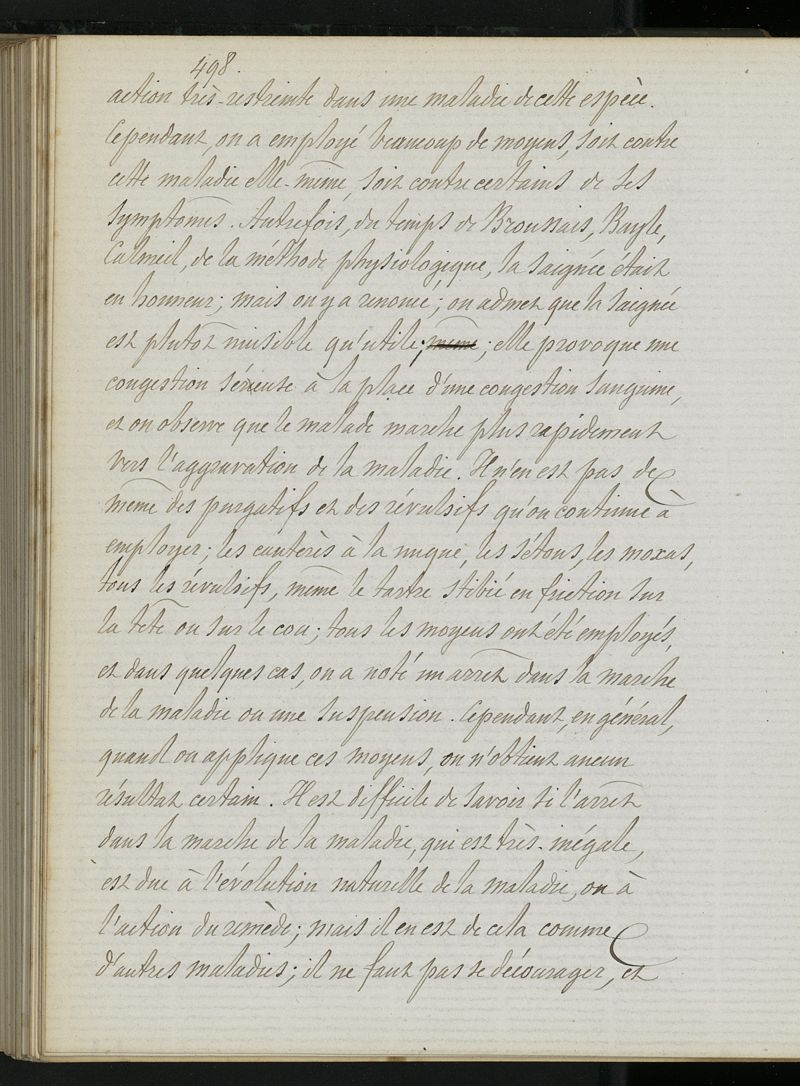 498.
action très-restreinte dans une maladie de cette espèce.
Cependant, on a employé beaucoup de moyens, soit contre
cette maladie elle-même, soit contre certains de ses
symptômes. Autrefois, du temps de Broussais, Bayle,
Calmeil, de la méthode physiologique, la saignée était
en honneur; mais on y a renoncé; on admet que la saignée
est plutôt nuisible qu'utile; même; elle provoque une
congestion séreuse à la place d'une congestion sanguine,
et on observe que le malade marche plus rapidement
vers l'aggravation de la maladie. Il n'en est pas de
même des purgatifs et des révulsifs qu'on continue à
employer; les cautères à la nuque, les sétons, les moxas,
tous les révulsifs, même le tartre stibié en friction sur
la tête ou sur le cou; tous les moyens ont été employés,
et dans quelques cas, on a noté un arrêt dans la marche
de la maladie ou une suspension. Cependant, en général,
quand on applique ces moyens, on n'obtient aucun
résultat certain. Il est difficile de savoir si l'arrêt
dans la marche de la maladie, qui est très-inégale,
est due à l'évolution naturelle de la maladie, ou à
l'action du remède; mais il en est de cela comme
d'autres maladies; il ne faut pas se décourager, et